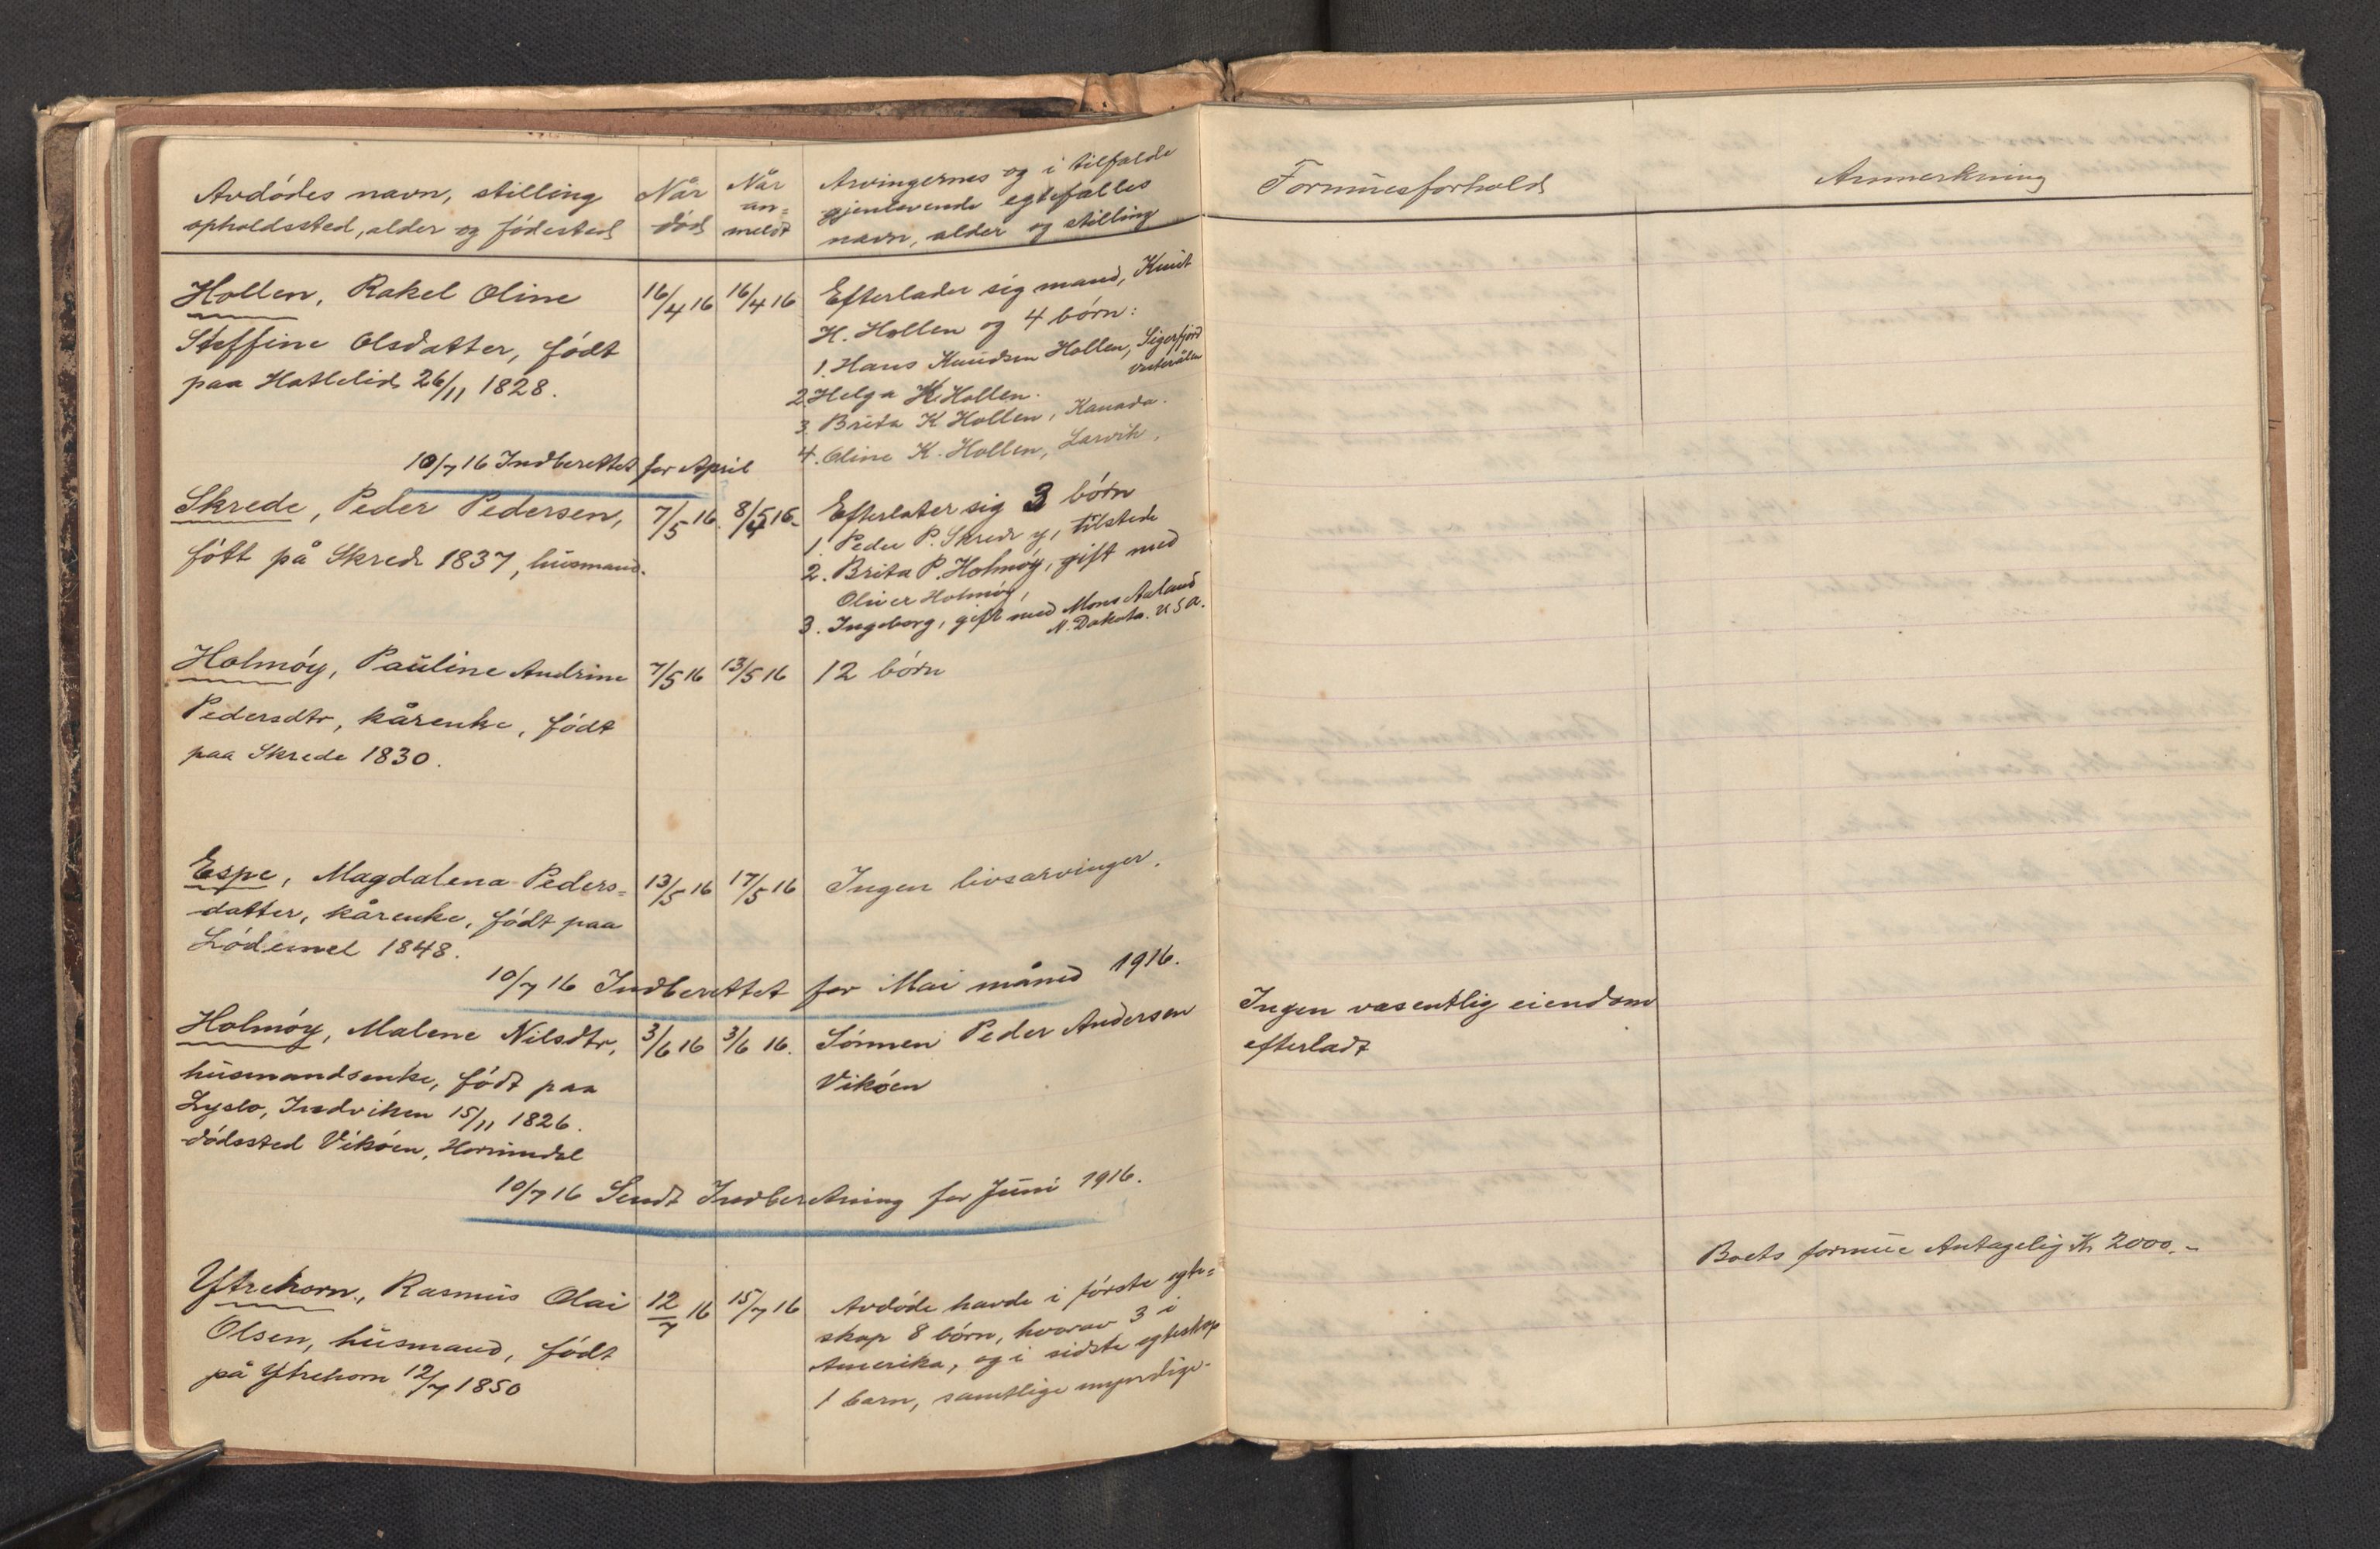 Avdödes navn, stilling
opholdssted, alder og födested
Når
död
Når
an=
meldt
Arvingernes og i tilfælde
gjenlevende egtefælles
navn, alder og stilling
Formuesforhold
Anmerkning
Hollen, Rakel Oline
Steffine Olsdatter, födt
paa Hatlelid 26/11 1828.
16/4 16
16/4 16
Efterlader sig mand, Knut
H. Hollen og 4 börn:
1. Hans Knudsen Hollen, Sigerfjord
Vesterålen
2. Helga K Hollen.
3. Brita K Hollen, Kanada.
4. Oline K. Hollen, Larvik.
10/7 16 Indberettet for April
Skrede, Peder Pedersen,
fött på Skrede 1837, husmand.
7/5 16
8/5 16
Efterlater sig 3 börn
1. Peder P. Skrede y, tilstede
2. Brita P. Holmöy, gift med
Oliver Holmöy,
3. Ingeborg, gift med Mons Aaland
N. Dakota. U S A.
Holmöy, Pauline Andrine
Pedersdtr, kårenke, födt
paa Skrede 1830.
7/5 16
13/5 16
12 börn
Espe, Magdalena Peders=
datter, kårenke, födt paa
Lödemel 1848.
13/5 16
17/5 16
Ingen livsarvinger.
10/7 16 Indberettet for Mai måned 1916.
Holmöy, Malene Nilsdtr,
husmandsenke, födt paa
Lyslo, Indviken 15/11 1826.
dödssted Viköen, Hornindal
3/6 16
3/6 16.
Sönnen Peder Andersen
Viköen
Ingen væsentlig eiendom
efterladt
10/7 16 Sendt Indberetning for Juni 1916.
Ytrehorn, Rasmus Olai
Olsen, husmand, födt
på Ytrehorn 12/7 1850
12/7 16
15/7 16
Avdöde havde i förste egte=
skap 8 börn, hvorav 3 i
Amerika, og i sidste egteskap
1 barn, samtlige myndige.
Boets formue Antagelig Kr 2000,-